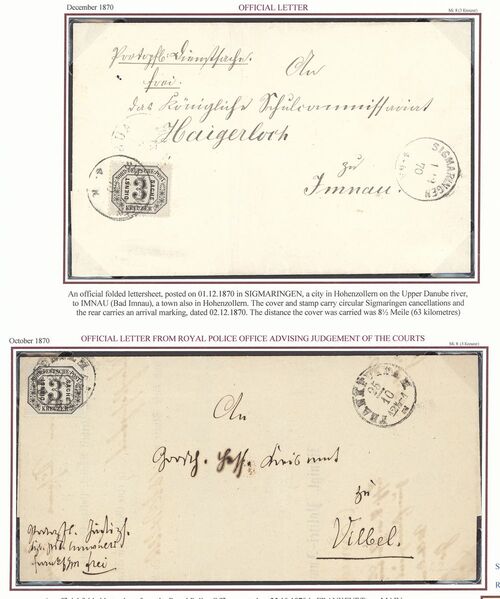 December 1870 OFFICIAL LETTER Mi 8 (3 Kreuzer)
Portopfl. Dienstsache.
frei.
An
das Königliche Schulcommissariat
Haigerloch
zu
Imnau.
NORDDEUTSCHE POST
DIENST 3 SACHE
KREUZER
SIGMARINGEN
1 12
70
An official folded lettersheet, posted on 01.12.1870 in SIGMARINGEN, a city in Hohenzollern on the Upper Danube river,
to IMNAU (Bad Imnau), a town also in Hohenzollern. The cover and stamp carry circular Sigmaringen cancellations and
the rear carries an arrival marking, dated 02.12.1870. The distance the cover was carried was 8½ Meile (63 kilometres)
October 1870 OFFICIAL LETTER FROM ROYAL POLICE OFFICE ADVISING JUDGEMENT OF THE COURTS Mi 8 (3 Kreuzer)
NORDDEUTSCHE POST
3 SACHE
KREUZER
25
10
An
Hess. Kreisamt
zu
Vilbel.
Portopfl. Justizs.
frei